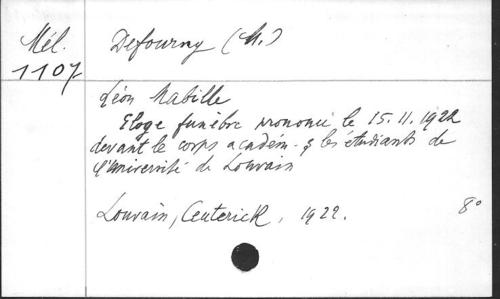 Mél.
1107
Defourny (M.)
Léon Mabille
Eloge funèbre prononcé le 15.11.1922
devant le corps académ. & les étudiants de
l'Université de Louvain
Louvain, Ceuterick, 1922. 8°